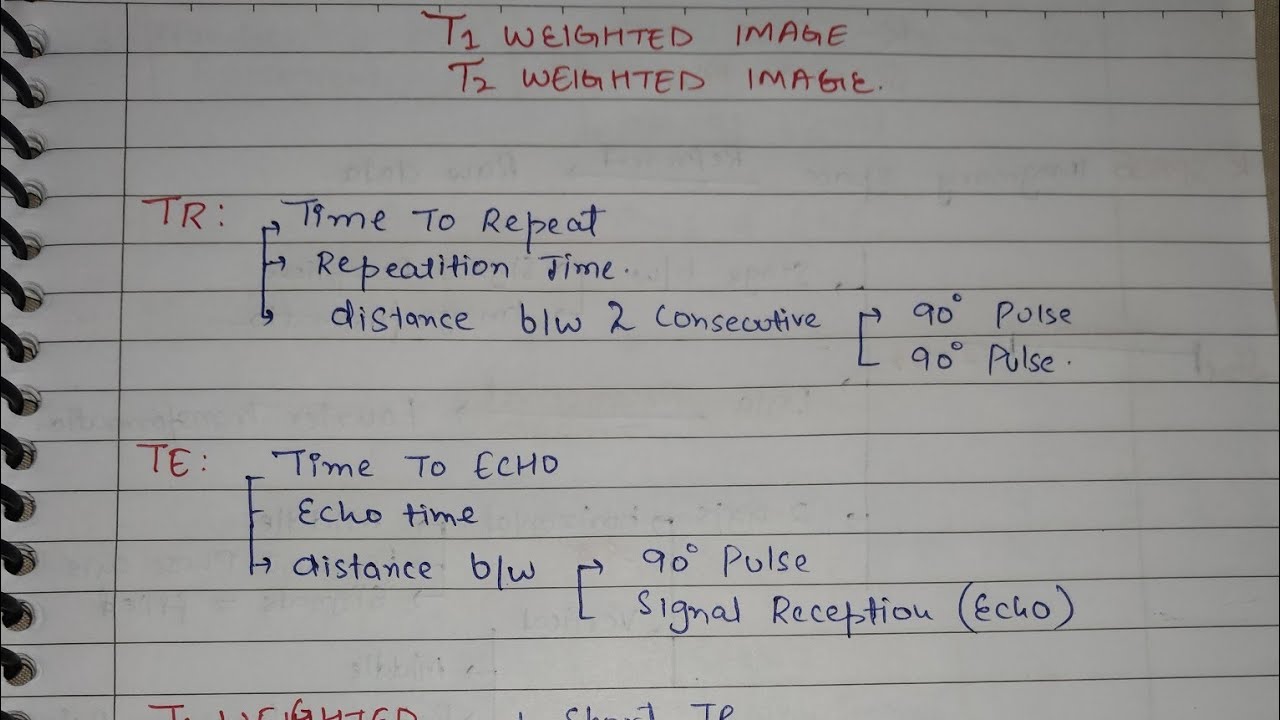 T1 WEIGHTED IMAGE
T2 WEIGHTED IMAGE.
TR: → Time To Repeat
→ Repeatition Time.
→ distance b/w 2 Consecutive → 90° Pulse
90° Pulse.
TE: Time To ECHO
Echo time
→ distance b/w → 90° Pulse
Signal Reception (Echo)
WEIGHTED Short TR